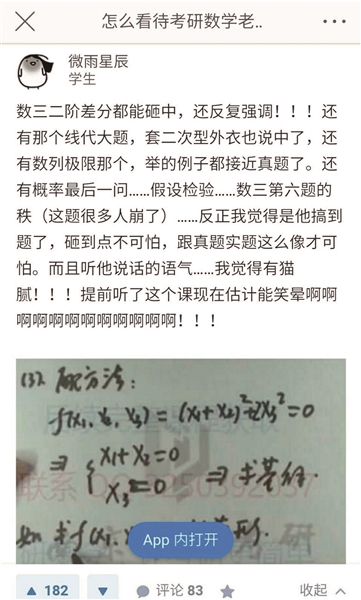 怎么看待考研数学老..
微雨星辰
学生
数三二阶差分都能砸中，还反复强调！！！还
有那个线代大题，套二次型外衣也说中了，还
有数列极限那个，举的例子都接近真题了。还
有概率最后一问……假设检验……数三第六题的
秩（这题很多人崩了）……反正我觉得是他搞到
题了，砸到点不可怕，跟真题实题这么像才可
怕。而且听他说话的语气……我觉得有猫
腻！！！提前听了这个课现在估计能笑晕啊啊
啊啊啊啊啊啊啊啊啊啊啊！！！
(3). 配方法：
f(x₁, x₂, x₃) = (x₁+x₂)²+2x₃²=0
⇒ { x₁+x₂=0
x₃=0
⇒ 求基础
联系
如 求f(x₁,
App 内打开
182
评论 83
收起